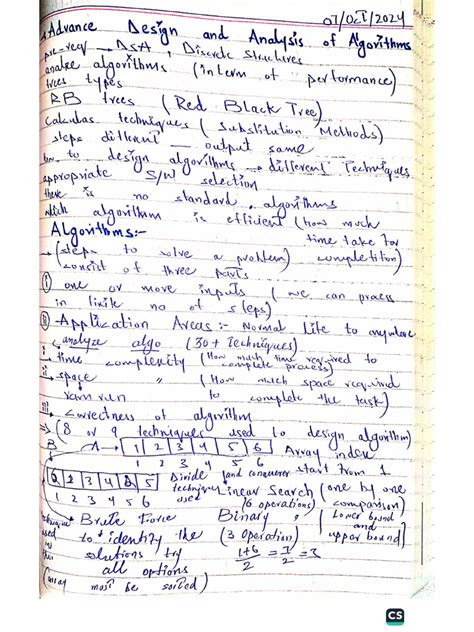 07/Oct/2024
Advance Design and Analysis of Algorithms
pre-req → DSA, Discrete Structures
analze algorithms (interm of performance)
trees types
RB trees (Red Black Tree)
Calculas techniques (Substitution Methods)
steps different — output same
how to design algorithms → different Techniques
appropriate S/W selection
there is no standard algorithms
which algorithm is efficient (how much
time take for
completition)
Algorithms:-
→ (steps to solve a problem)
consist of three parts
(i) one or more inputs (we can process
in finite no of steps)
(ii) Application Areas:- Normal life to anywhere
analyze algo (30+ techniques)
i. time complexity (How much time required to
complete process)
ii. space " (How much space required
to complete the task)
iii. Correctness of algorithm
⇒ (8 or 9 techniques used to design algorithm)
B A→ 1 2 3 4 5 6 Array index
1 2 3 4 5 6 start from 1
Divide and conquerer
1 2 3 4 5 6 technique used
Linear Search (one by one
(6 operations) comparison)
→ Brute Force Binary " (Lower bound
and
upper bound)
used to identify the (3 operation)
solutions try 1+6/2 = 7/2 = 3
all options
(array must be sorted)
CS